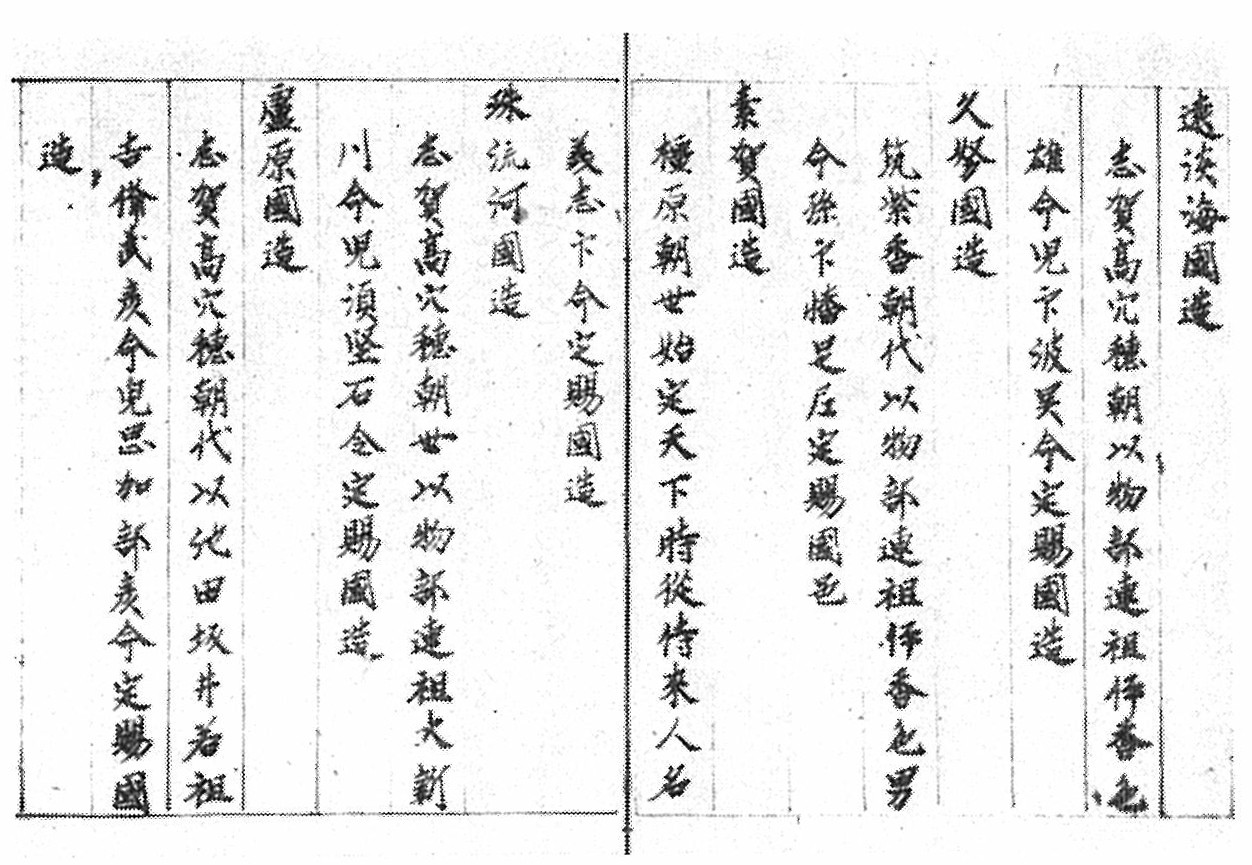 遠淡海國造
志賀高穴穗朝以物部連祖伊香色
雄命児卞波㒵命定賜國造
久努國造
筑紫香朝代以物部連祖伊香色男
命孫卞幡足尼定賜國造
素賀國造
橿原朝世始定天下時從侍來人名
義志卞命定賜國造
珠流河國造
志賀高穴穗朝世以物部連祖大新
川命児項堅石命定賜國造
廬原國造
志賀高穴穗朝代以池田坂井君祖
吉俻武彦命児思加部彦命定賜國
造